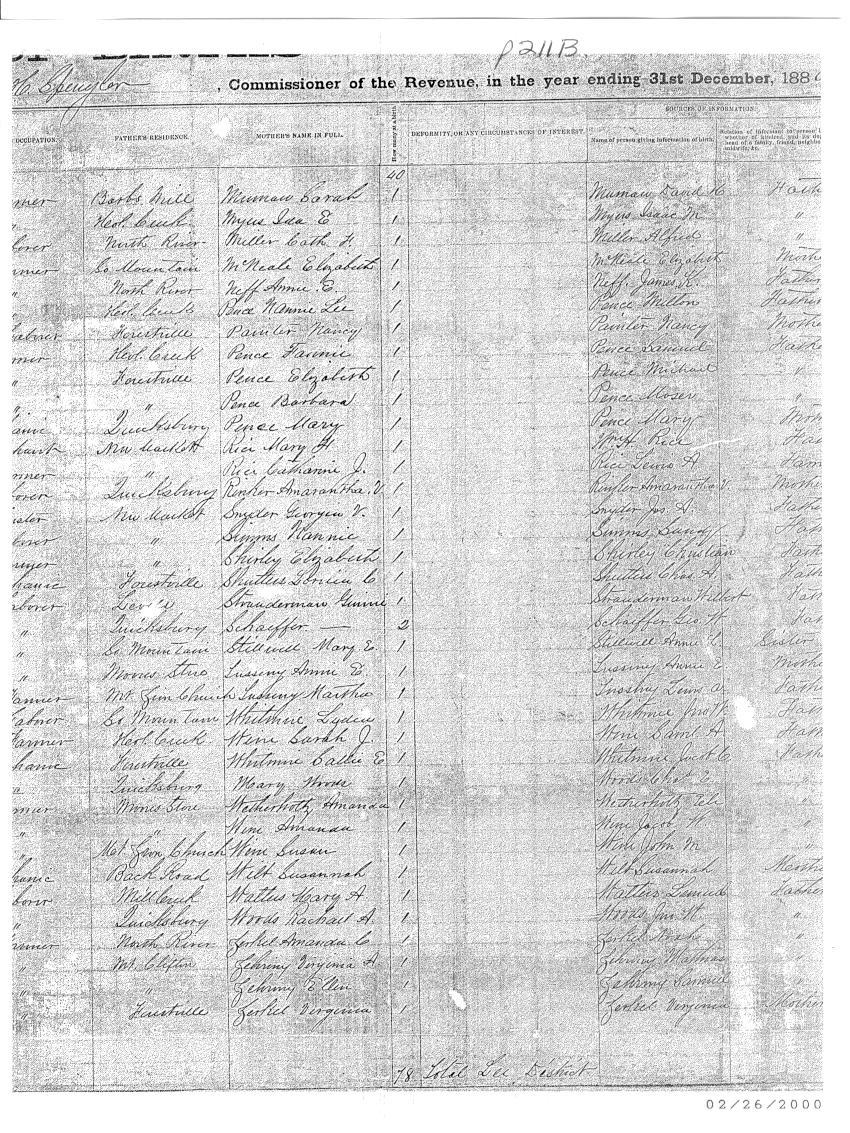 p 211 B
H. Spengler, Commissioner of the Revenue, in the year ending 31st December, 188
SOURCES OF INFORMATION.
OCCUPATION. FATHER'S RESIDENCE. MOTHER'S NAME IN FULL. How many at a birth DEFORMITY, OR ANY CIRCUMSTANCES OF INTEREST. Name of person giving information of birth. Relation of informant to person
whether of kindred, and its
head of a family, friend,
midwife, &c.
40
mer Barbs Mill Mumaw Sarah 1 Mumaw David H Fath
" Hol. Creek Myers Ida E 1 Myers Isaac M "
borer North River Miller Cath F. 1 Miller Alfred "
rmer So Mountain McNeale Elizabeth 1 McNeale Elizabeth Moth
" North River Neff Annie E. 1 Neff James K. Father
" Hol. Creek Pence Nannie Lee 1 Pence Milton Father
Laborer Forestville Painter Nancy 1 Painter Nancy Mothe
mer Hol. Creek Pence Fannie 1 Pence Samuel Fathe
" Forestville Pence Elizabeth 1 Pence Michael "
" " Pence Barbara 1 Pence Moser "
anic Quicksburg Pence Mary 1 Pence Mary Mo
chant New Market Rice Mary F. 1 Wm H. Rice Fat
rmer " Rice Catharine J. 1 Rice Lewis A
borer Quicksburg Renker Amarantha V. 1 Renker Amarantha V. Mothe
ister New Market Snyder Georgia V. 1 Snyder Jos. A. Fathe
borer " Simms Nannie 1 Simms Sandy Fath
rmer " Shirley Elizabeth 1 Shirley Christian Fath
hanic Forestville Shutters C 1 Shutters Chas. A. Fath
aborer Strauderman Ginnie 1 Strauderman Wilbert Fath
" Quicksburg Schaeffer — 2 Schaeffer Geo. W. Fat
" So Mountain Stillwell Mary E. 1 Stillwell Annie C. Sister
" Moores Stre Lussiny Annie E. 1 Lussiny Annie E Mothe
Farmer Mt. Zion Church Lussiny Martha 1 Lussiny Lewis A. Fathe
Laborer So Mountain Whitmire Lydia 1 Whitmire Jno W. Fath
Farmer Hol. Creek Wine Sarah J. 1 Wine Saml. A. Fath
hanic Forestville Whitmire Callie E 1 Whitmire Jacob C. Fath
" Quicksburg Mary Woods 1 Woods Chas. E "
rmer Moores Store Wetherholtz Amanda 1 Wetherholtz "
" " Wine Amanda 1 Wine Jacob W. "
" Mt. Zion Church Wine Susan 1 Wine John M "
hanic Back Road Wilt Susannah 1 Wilt Susannah Moth
borer Mill Creek Walters Mary A 1 Walters Samuel Father
" Quicksburg Woods Rachael A. 1 Woods Jno. W. "
rmer North River Zerkel Amanda C 1 Zerkel Noah "
" Mt. Clifton Zehring Virginia A 1 Zehring Mathias "
" " Zehring Ellen 1 Zehring Samuel "
" Forestville Zerkel Virginia 1 Zerkel Virginia Mother
78 Total Lee District
02/26/2000